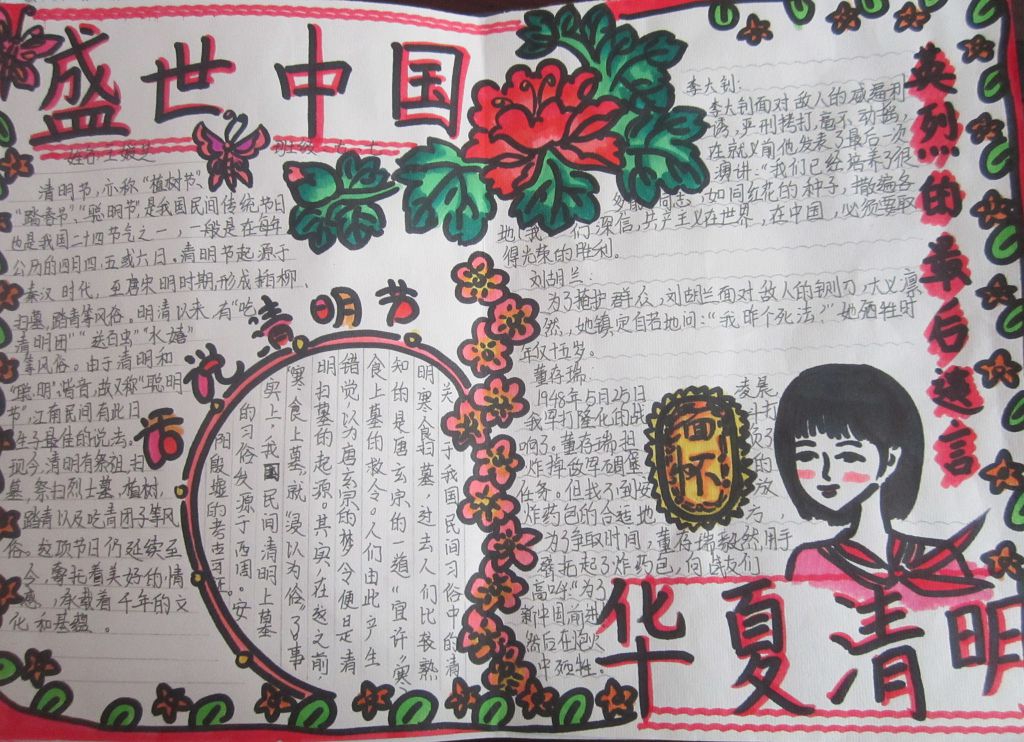 盛世中国
清明节,亦称“植树节、
“踏春节”“聪明节”,是我国民间传统节日
也是我国二十四节气之一,一般是在每年
公历的四月四、五或六日。清明节起源于
秦汉时代,至唐宋明时期,形成插柳、
扫墓,踏青等风俗。明清以来,有“吃
清明团”“送白虫”“水嬉
等风俗。由于清明和
“聪,明”谐音,故又称“聪明
节”,江南民间有此日
生子最佳的说法。
现今,清明有祭祖,扫
墓,祭扫烈士墓,植树,
踏青以及吃青团子等风
俗。这项节日仍延续至
今,寄托着美好的情
感,承载着千年的文
化和基蕴。
话说清明节
关于我国民间习俗中的清
明寒食扫墓,过去人们比较熟
知的是唐玄宗的一道“宜许“寒
食上墓的敕令。人们由此产生
错觉以为唐玄宗的梦令便是清
明扫墓的起源。其实在这之前,
“寒食上墓”就“浸以为俗”了。事
实上,我国民间清明上墓
的习俗发源于西周。安
阳殷墟的考古
英烈的最后遗言
李大钊:
李大钊面对敌人的威逼利
诱,严刑拷打,毫不动摇,
在就义前他发表了最后一次
演讲:“我们已经培养了很
多 同志,如同红花的种子,撒遍各
地!我们深信,共产主义在世界,在中国,必须要取
得光荣的胜利。
刘胡兰:
为了掩护群众,刘胡兰面对敌人的铡刀,大义凛
然,她镇定自若地问:“我咋个死法?”她牺牲时
年仅十五岁。
董存瑞:
1948年5月25日 凌晨
我军打隆化的战 斗打
响了。董存瑞担 负了
炸掉敌军碉堡 的
任务。但找不到安 放
炸药包的合适地 方,
为了争取时间,董存瑞毅然用手
托起了炸药包,向战友们
高喊:“为了
新中国前进
然后在炮火
中牺牲。
缅怀
华夏清明